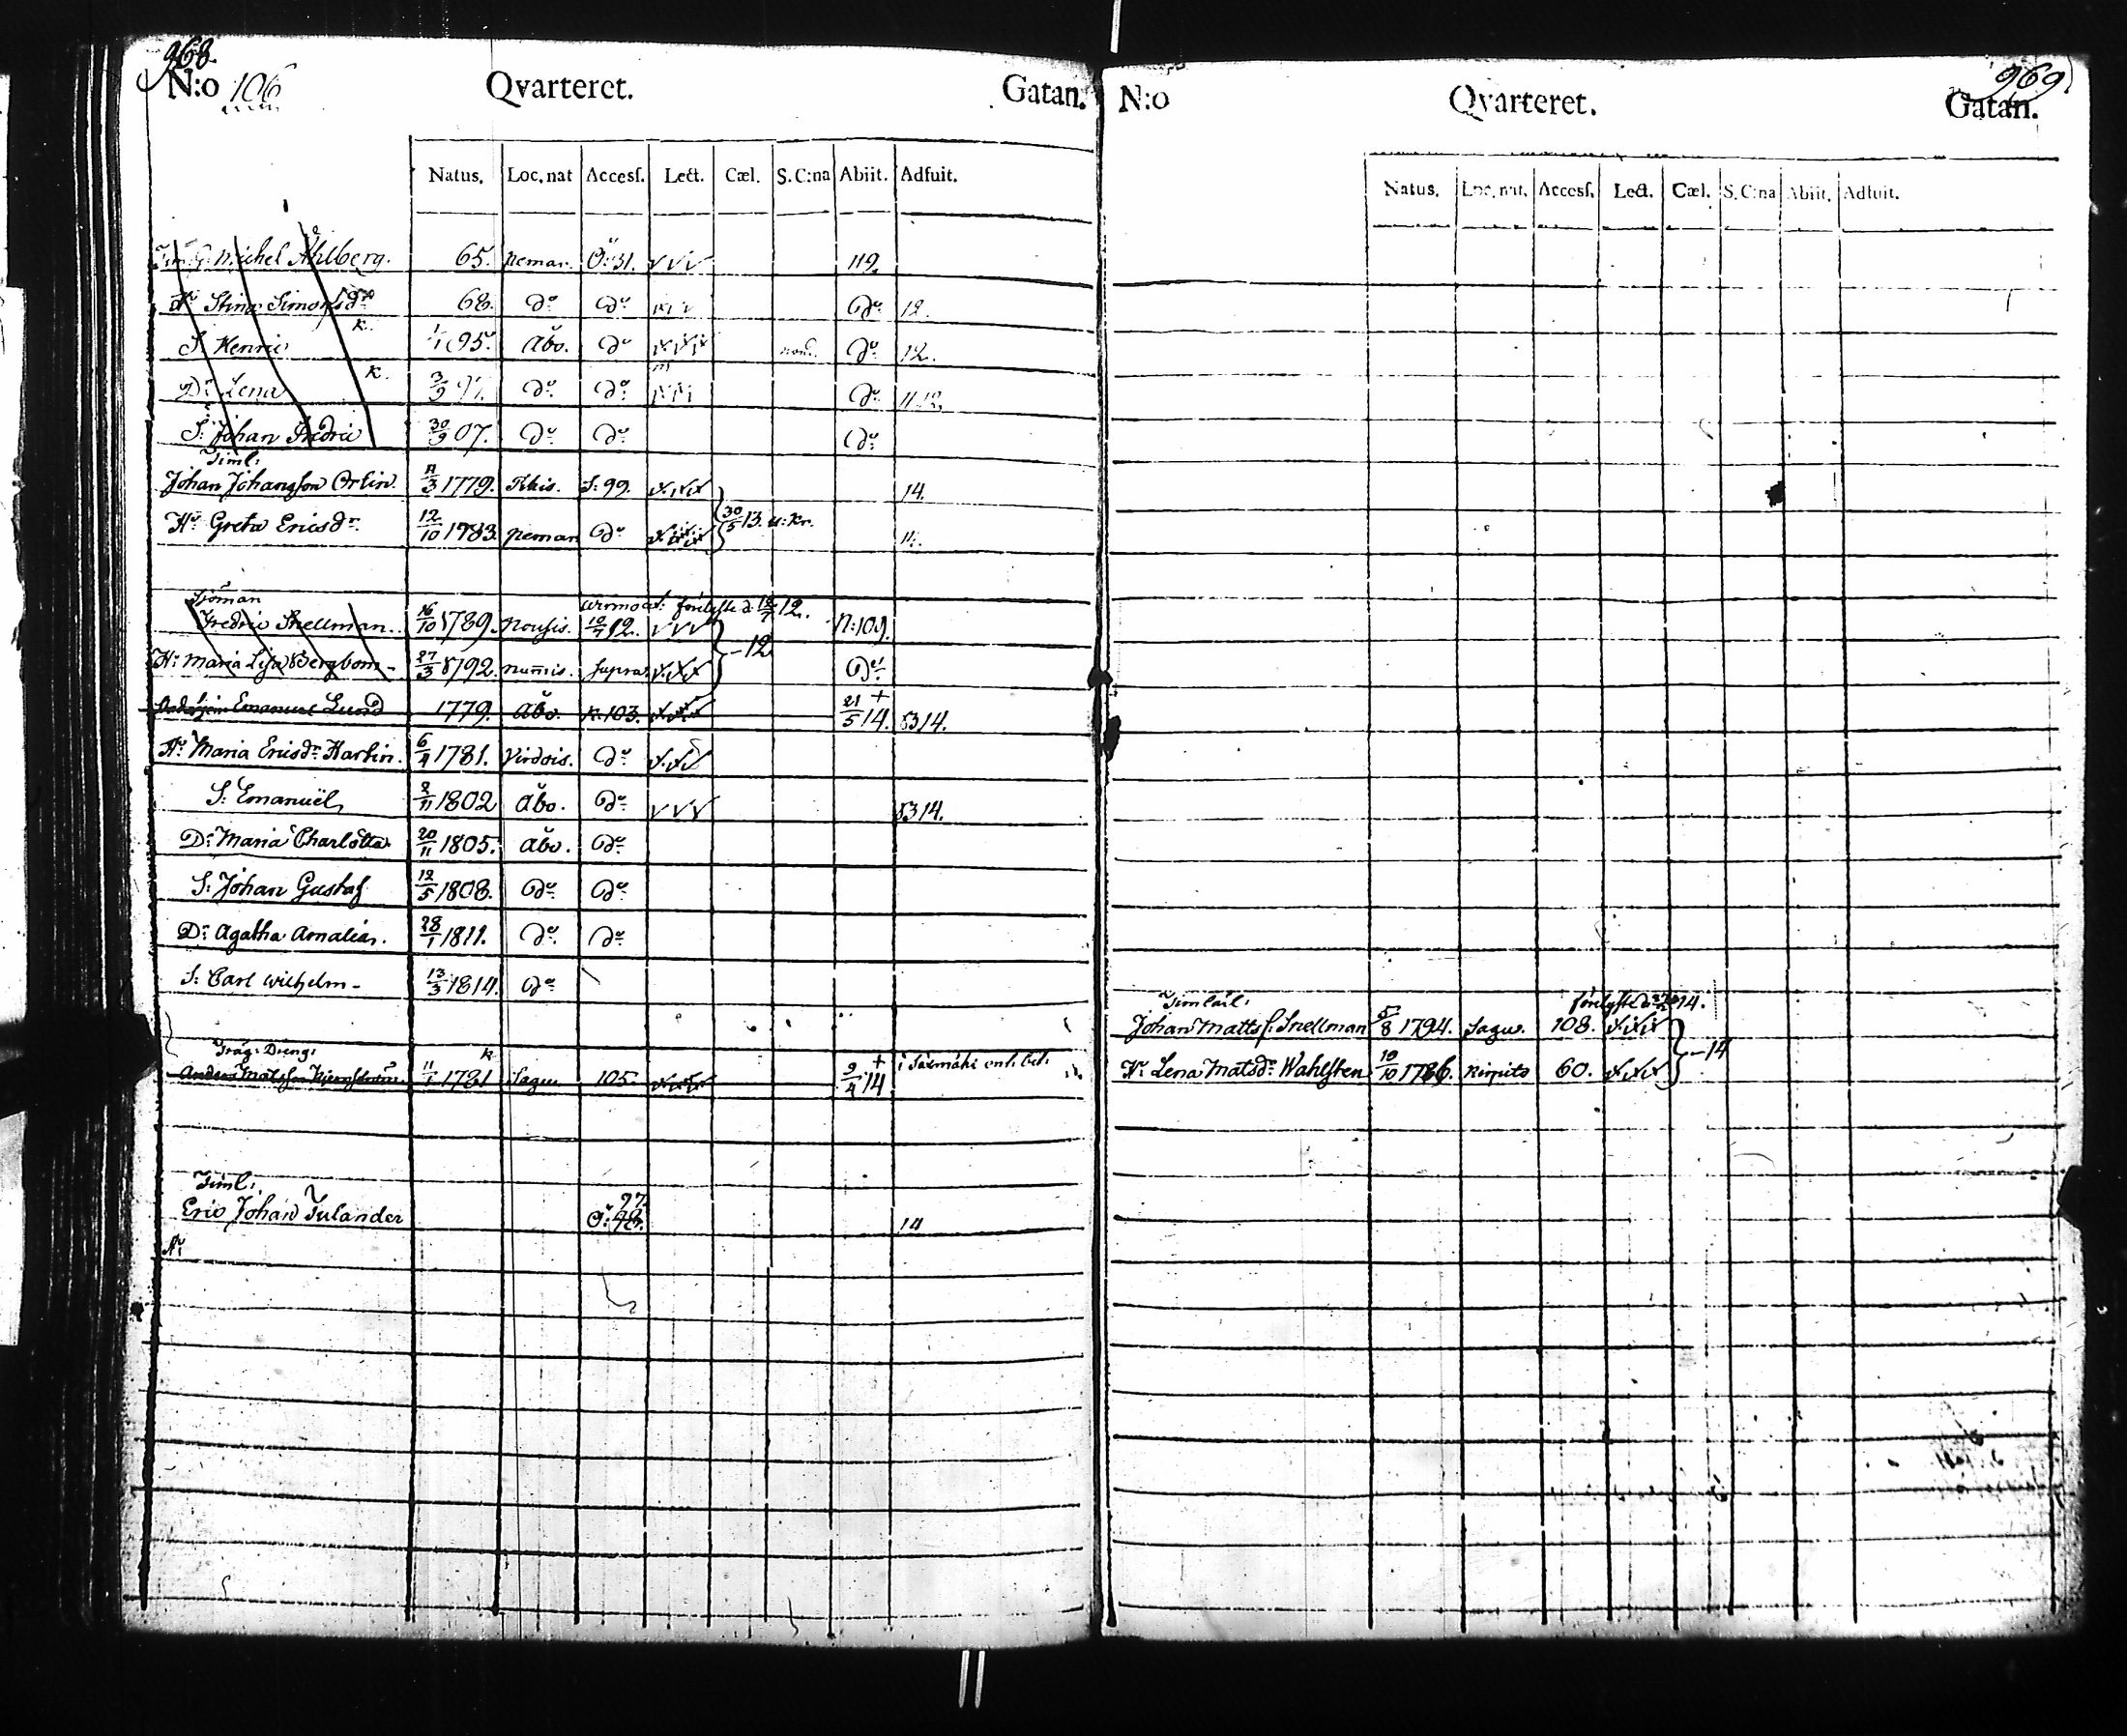 968.
N:o 106 Qvarteret. Gatan.
Natus. Loc. nat Access. Lect. Cæl. S. C:na Abiit. Adfuit.
Michel Åhlberg. 65. Nemar. Ö: 31. 119.
Hu Stina Simonsdr 68. do do do 12.
S. Henric k. 1/1 95. Åbo. do do 12.
Dr Lena k. 3/9 97. do do do 11.12.
S: Johan Fredric 30/9 07. do do do
Timl:
Johan Johansson Orlin. 11/3 1779. S: 99. 14.
Hu Greta Ericsdr 12/10 1783 Nemar do 30/5 13. u: Kr. 11.
Sjöman förlyste d: 12.
Fredric Snellman. 16/10 1789. Nousis. 12. N: 109.
Hu Maria Lisa Bergbom - 27/3 1792. Num̄is. supra. -12. do
Emanuel Lund 1779. Åbo. K. 103. 21/5 + 14. 1314.
Hu Maria Ericsdr Karlin. 6/4 1781. Virdois. do
S: Emanuel 2/11 1802 Åbo. do 1314.
Dr Maria Charlotta 20/11 1805. Åbo. do
S: Johan Gustaf 12/5 1808. do do
Dr Agatha Amalia. 28/1 1811. do do
S: Carl Wilhelm - 13/3 1814. do
Träg: Dreng: k
Anders Matsson 11/1 1781 Sagu 105. 9/4 + 14. i Saxmäki enl. bet:
Timl:
Eric Johan Julander 97. Ö: 98. 14
Hu
969.
N:o Qvarteret. Gatan.
Natus. Loc. nat. Access. Lect. Cæl. S. C:na Abiit. Adfuit.
Timkarl: förlyste d: 14.
Johan Matts s: Snellman 5/8 1794. Sagu. 108.
Hu Lena Matsdr Wahlsten 19/10 1786. Rimito 60. -14